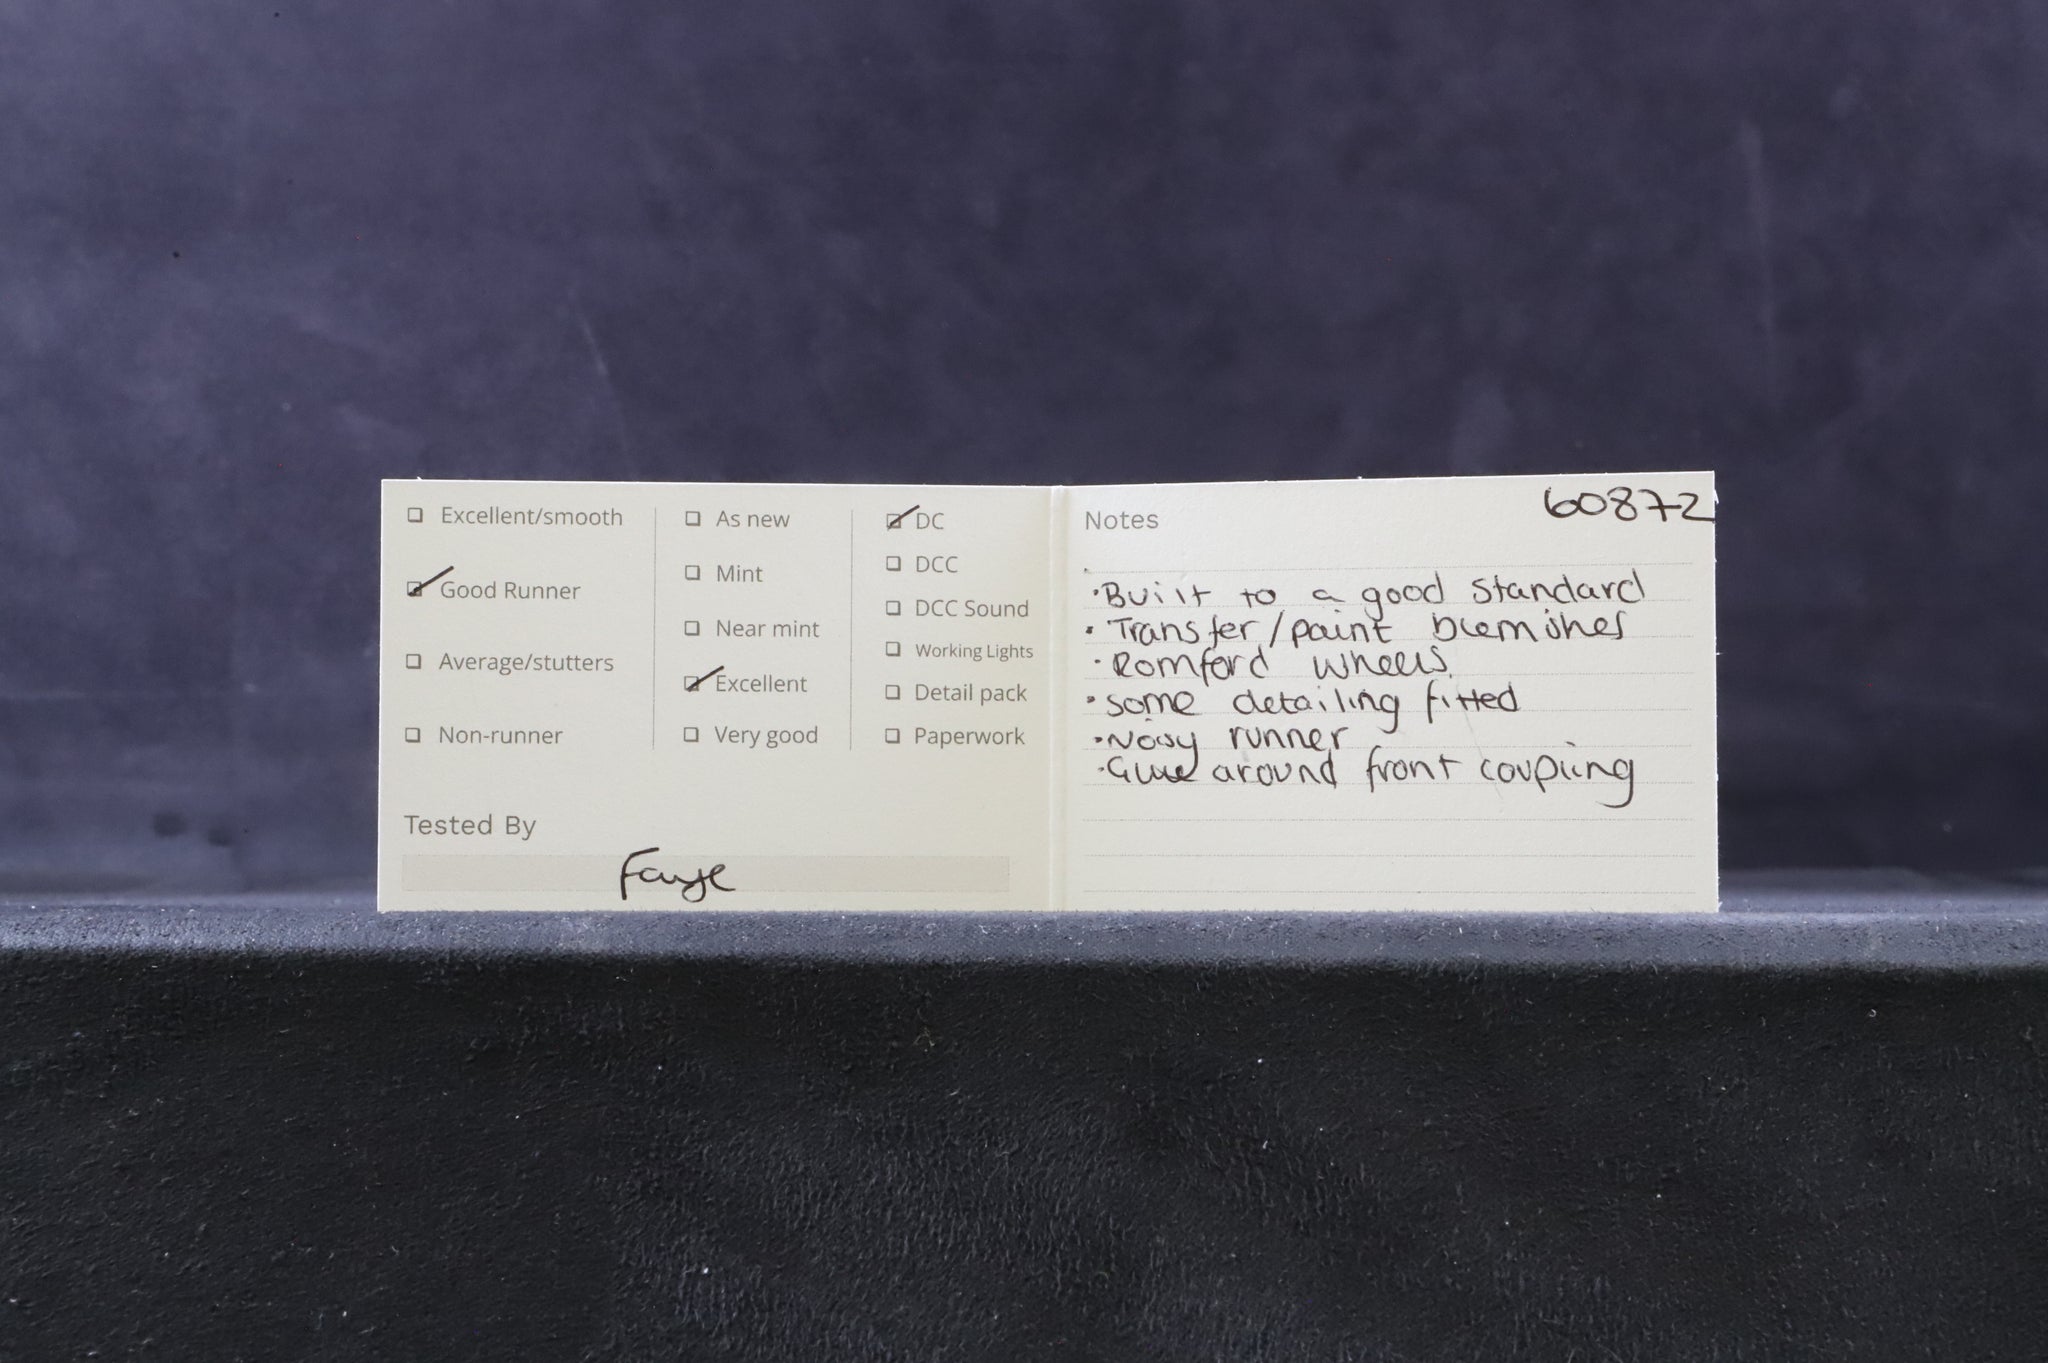 Excellent/smooth
Good Runner
Average/stutters
Non-runner
As new
Mint
Near mint
Excellent
Very good
DC
DCC
DCC Sound
Working Lights
Detail pack
Paperwork
Tested By
Faye
60872
Notes
• Built to a good standard
• Transfer/paint blemishes
• Romford wheels
• some detailing fitted
• Noisy runner
• Glue around front coupling